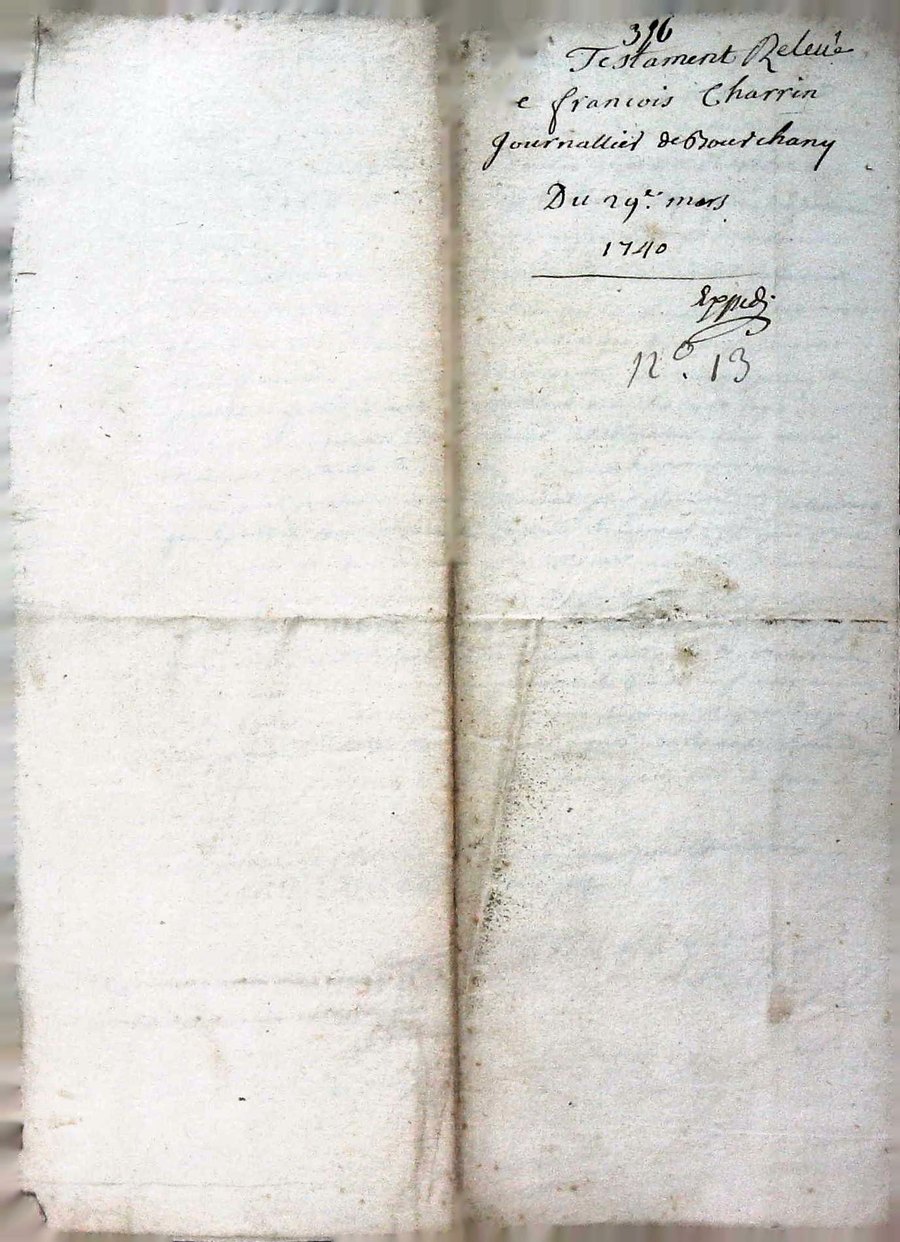 316
Testament Releué
e francois Charrin
Journallier de Bourchany
Du 29e. mars
1740
Expedi
no. 13